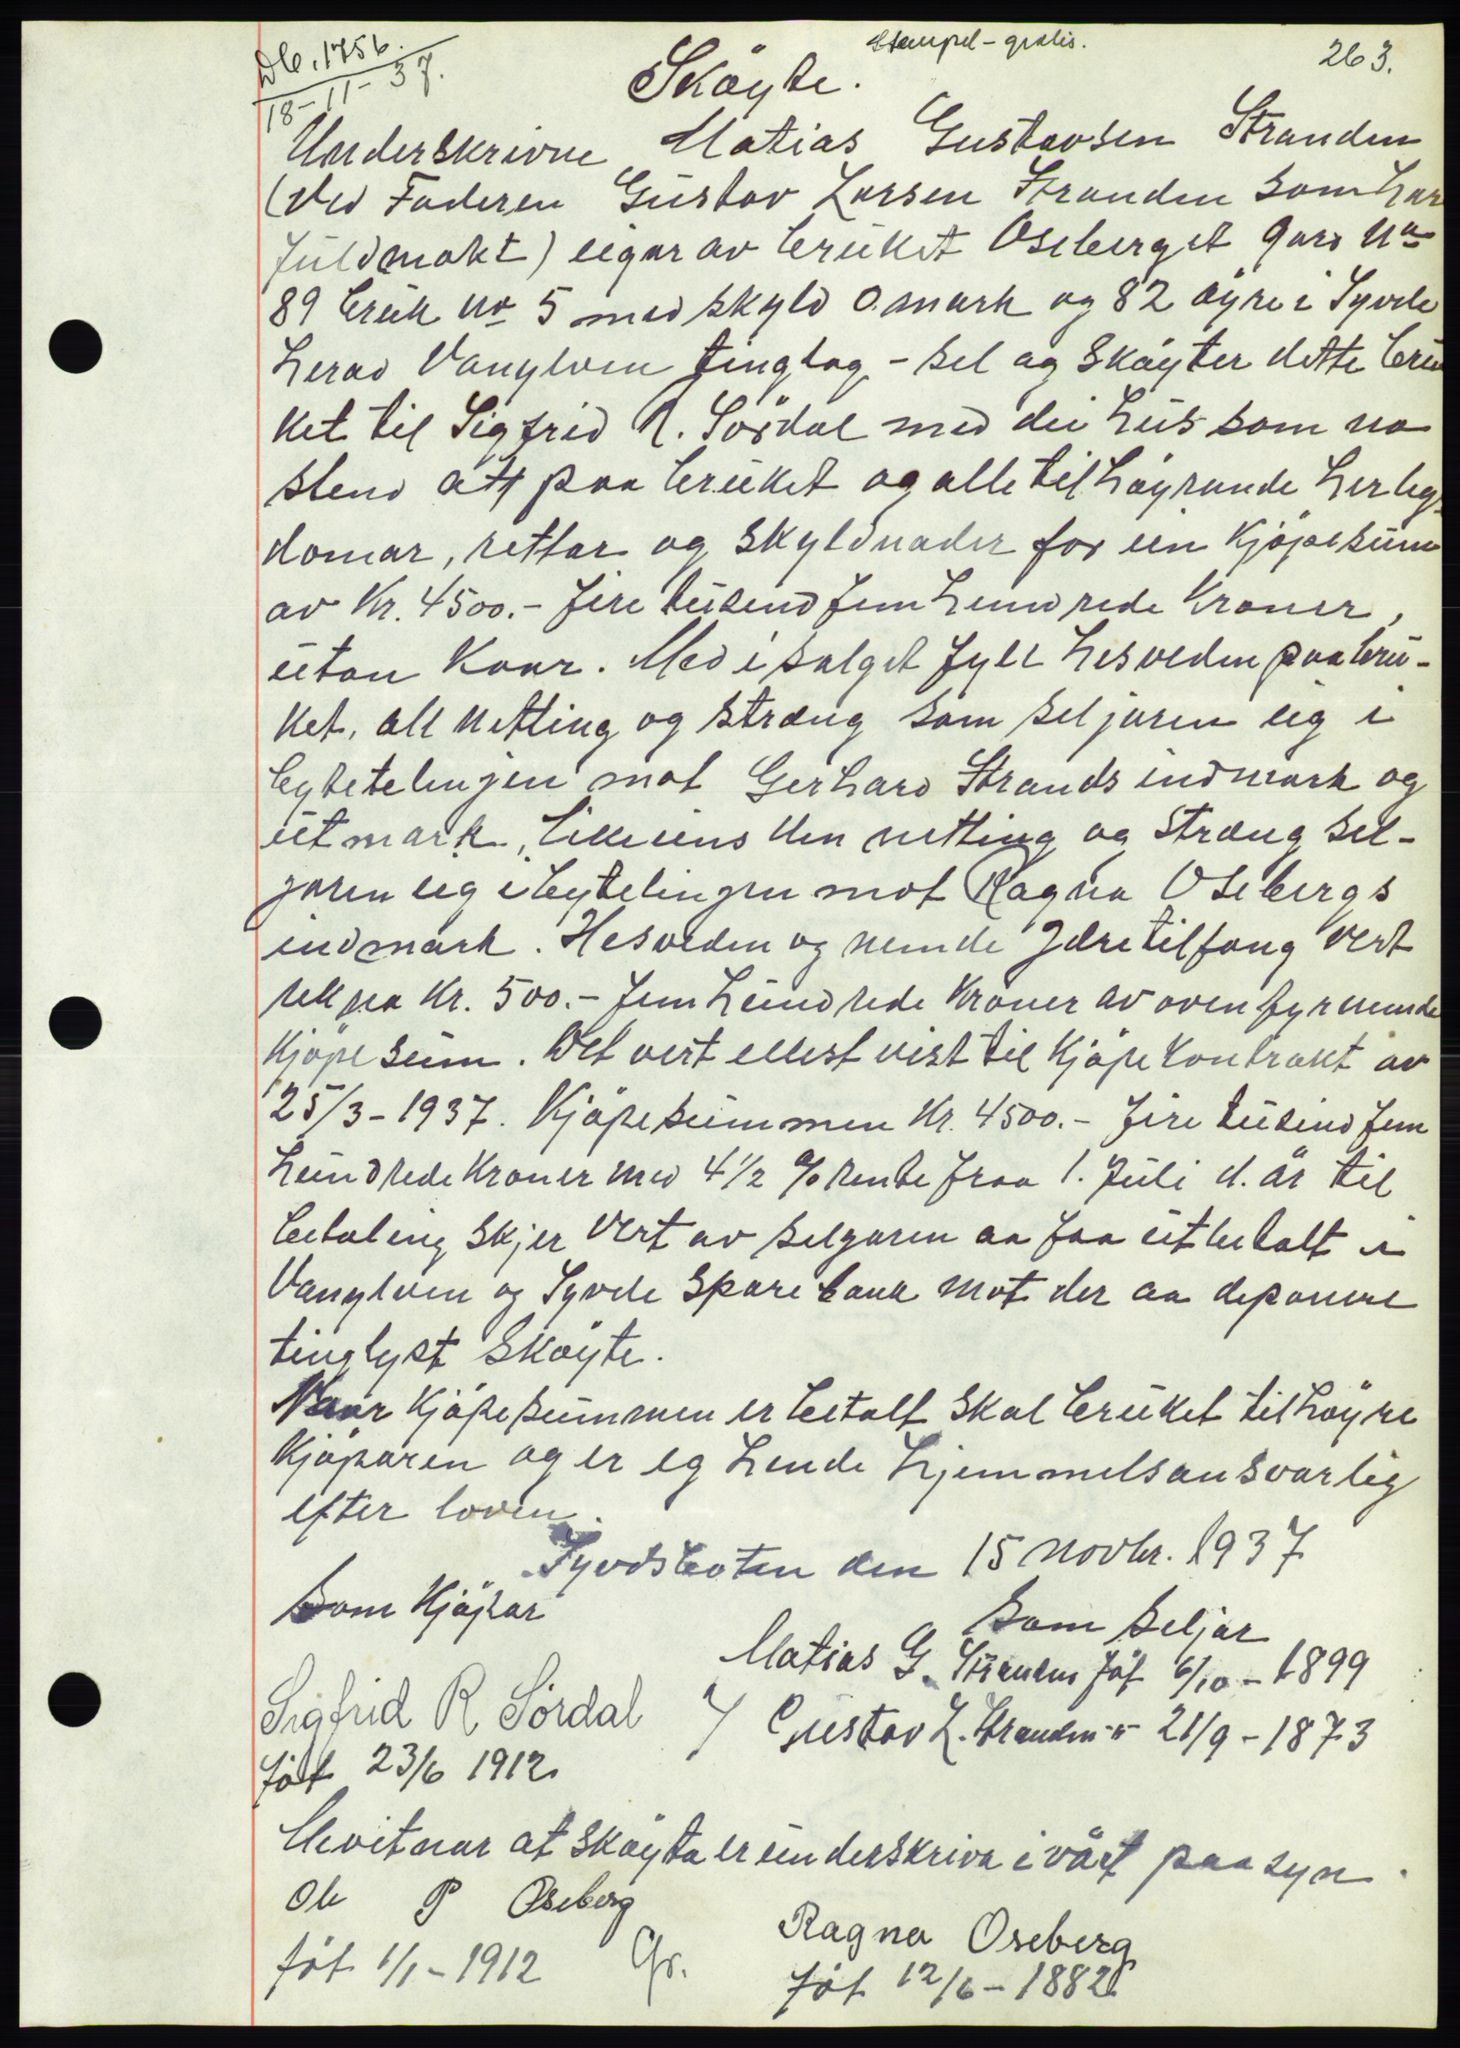 Db. 1756.
18-11-37.
Stempel-gratis.
263.
Skøyte.
Underskrivne Matias Gustavsen Stranden
(Ved Faderen Gustav Larsen Stranden som har
fuldmakt) eigar av bruket Oseberget gard No
89 bruk No 5 med skyld 0. mark og 82 øyre i Syvde
herad Vanylven tinglag - sel og skøyter dette bru
ket til Sigfrid R. Sørdal med dei hus som no
stend att paa bruket og alle tilhøyrande herleg-
domar, rettar og skyldnader for ein kjøpesum
av Kr. 4500.- fire tusend fem hundrede Kroner,
utan Kaar. Med i salget fyll hesveden paa bru-
ket, all netting og streng som seljaren eig i
bytetelinjen mot Gerhard Strands indmark og
utmark, likeeins den netting og streng sel-
jaren eig i bytelinjen mot Ragna Osebergs
indmark. Hesveden og nemde gjæretilfang vert
rekna Kr. 500.- fem hundrede Kroner av ovenfyrnemnde
Kjøpesum. Det vert ellest vist til Kjøpekontrakt av
25/3-1937. Kjøpesummen Kr. 4500.- fire tusend fem
hundrede Kroner med 4 1/2 % rente fraa 1. Juli d. år til
betaling skjer vert av seljaren aa faa utbetalt i
Vanylven og Syvde Sparebank mot der aa deponere
tinglyst Skøyte.
Naar Kjøpesummen er betalt skal bruket tilhøyre
Kjøparen og er eg hende hjemmelsansvarlig
efter loven.
Syvdsbotn den 15 novbr. 1937
Som Kjøpar
Som Seljar
Matias G. Stranden føt 6/10-1899
Sigfrid R Sördal
Gustav L. Stranden -"- 21/9-1873
føt 23/6 1912.
Me vitnar at skøyta er underskriva i vårt paasyn.
Ole P Oseberg
Ragna Oseberg
føt 1/1-1912
Gr.
føt 12/6-1882